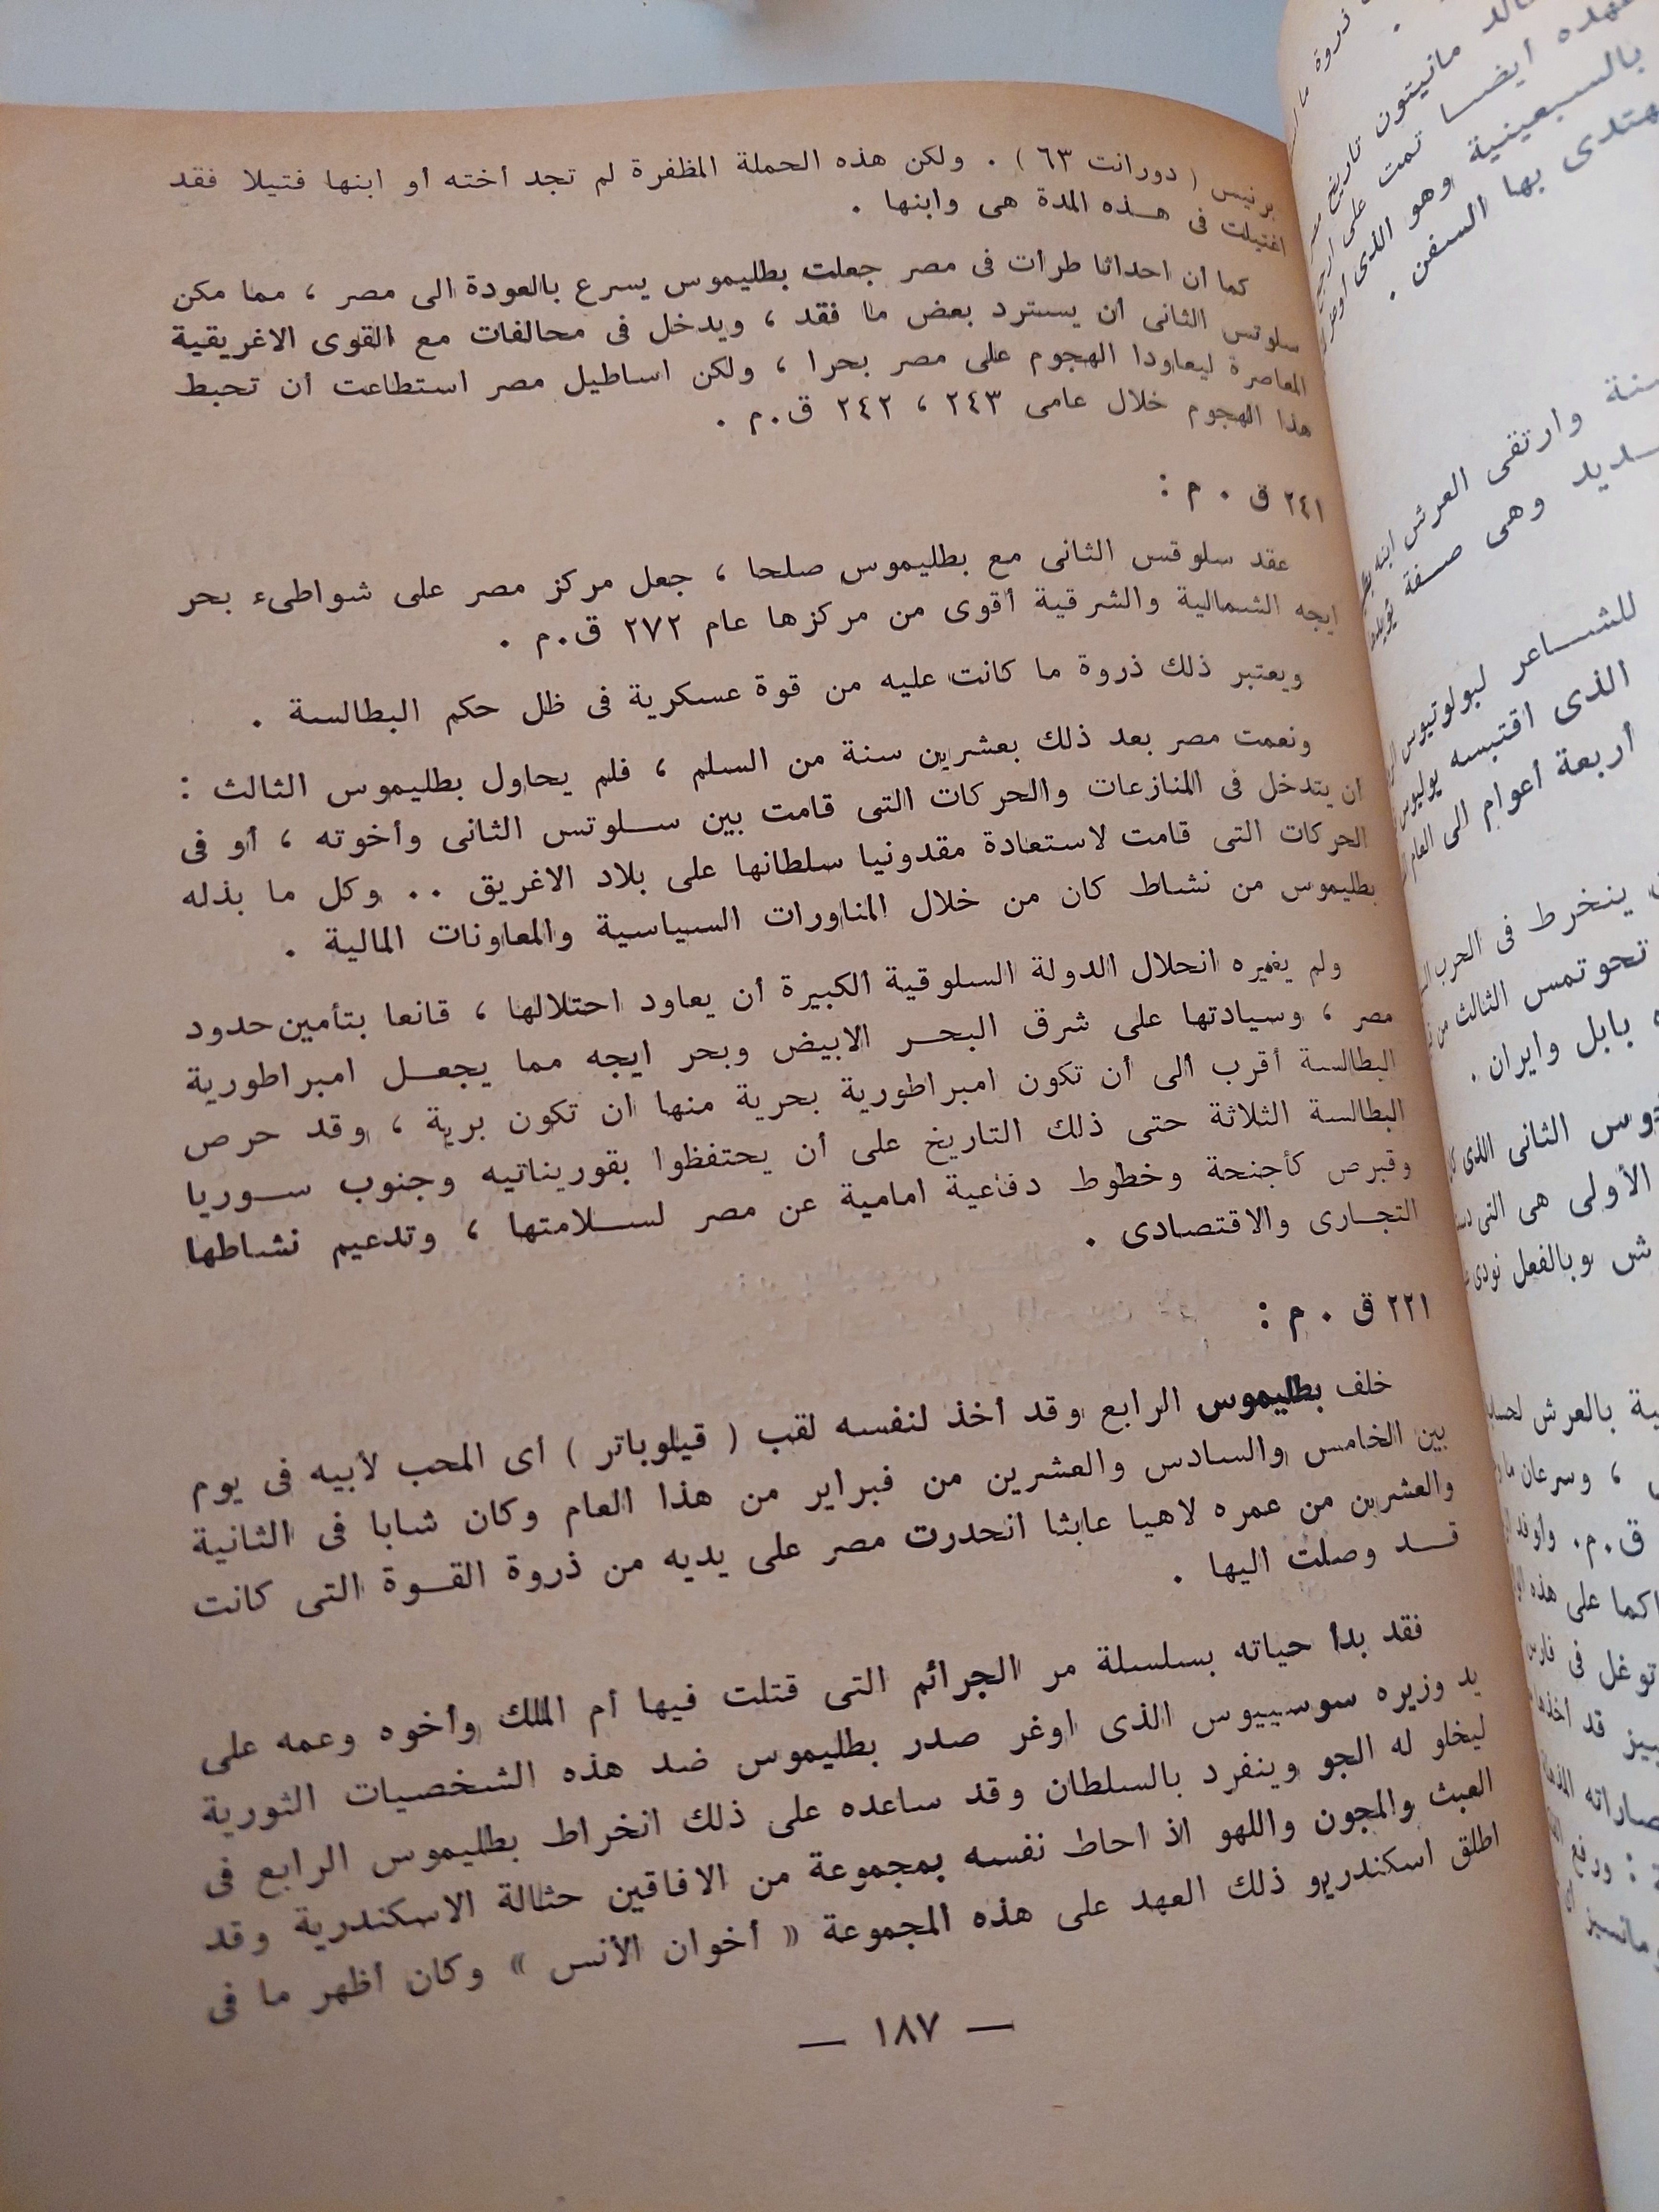 برنيس ( دورانت ٦٣ ) . ولكن هذه الحملة المظفرة لم تجد أخته أو ابنها فتيلا فقد
اغتيلت فى هـذه المدة هى وابنها .
كما أن احداثا طرأت فى مصر جعلت بطليموس يسرع بالعودة الى مصر ، مما مكن
سلوتس الثانى أن يسترد بعض ما فقد ، ويدخل فى محالفات مع القوى الاغريقية
المعاصرة ليعاودا الهجوم على مصر بحرا ، ولكن اساطيل مصر استطاعت أن تحبط
هذا الهجوم خلال عامى ٢٤٣ ، ٢٤٢ ق.م .
٢٤١ ق . م :
عقد سلوقس الثانى مع بطليموس صلحا ، جعل مركز مصر على شواطىء بحر
ايجه الشمالية والشرقية أقوى من مركزها عام ٢٧٢ ق.م .
ويعتبر ذلك ذروة ما كانت عليه من قوة عسكرية فى ظل حكم البطالسة .
ونعمت مصر بعد ذلك بعشرين سنة من السلم ، فلم يحاول بطليموس الثالث :
ان يتدخل فى المنازعات والحركات التى قامت بين سـلوتس الثانى وأخوته ، أو فى
الحركات التى قامت لاستعادة مقدونيا سلطانها على بلاد الاغريق .. وكل ما بذله
بطليموس من نشاط كان من خلال المناورات السياسية والمعاونات المالية .
ولم يغيره انحلال الدولة السلوقية الكبيرة أن يعاود احتلالها ، قانعا بتأمين حدود
مصر ، وسيادتها على شرق البحـر الابيض وبحر ايجه مما يجعـل امبراطورية
البطالسة أقرب الى أن تكون امبراطورية بحرية منها ان تكون برية ، وقد حرص
البطالسة الثلاثة حتى ذلك التاريخ على أن يحتفظوا بقوريناتيه وجنوب سـوريا
وقبرص كأجنحة وخطوط دفاعية امامية عن مصر لسـلامتها ، وتدعيم نشاطها
التجـارى والاقتصادى .
٢٢١ ق . م :
خلف بطليموس الرابع وقد أخذ لنفسه لقب ( قيلوباتر ) أى المحب لأبيه فى يوم
بين الخامس والسادس والعشرين من فبراير من هذا العام وكان شابا فى الثانية
والعشرين من عمره لاهيا عابثا انحدرت مصر على يديه من ذروة القـوة التى كانت
قـد وصلت اليها .
فقد بدأ حياته بسلسلة مر الجرائم التى قتلت فيها أم الملك وأخوه وعمه على
يد وزيره سوسيبيوس الذى اوغر صدر بطليموس ضد هذه الشخصيات الثورية
ليخلو له الجو وينفرد بالسلطان وقد ساعده على ذلك انخراط بطليموس الرابع فى
العبث والمجون واللهو اذ احاط نفسه بمجموعة من الافاقين حثالة الاسكندرية وقد
اطلق اسكندريو ذلك العهد على هذه المجموعة « أخوان الأنس » وكان أظهر ما فى
— ١٨٧ —
ذروة ما
مانيتون تاريخ
ايضـا تمت على
بالسبعينية وهو الذى
بها السفن .
وارتقى العرش ابنه
وهى صـفة
للشـاعر لبولوتيوس
الذى اقتبسه يوليوس
أربعة أعوام الى العام
ينخرط فى الحرب
تحوتمس الثالث من
بابل وايران .
الثانى الذى
الأولى هى التى
وبالفعل نودى
بالعرش
، وسرعان ما
ق.م.
على هذه
توغل فى
قد